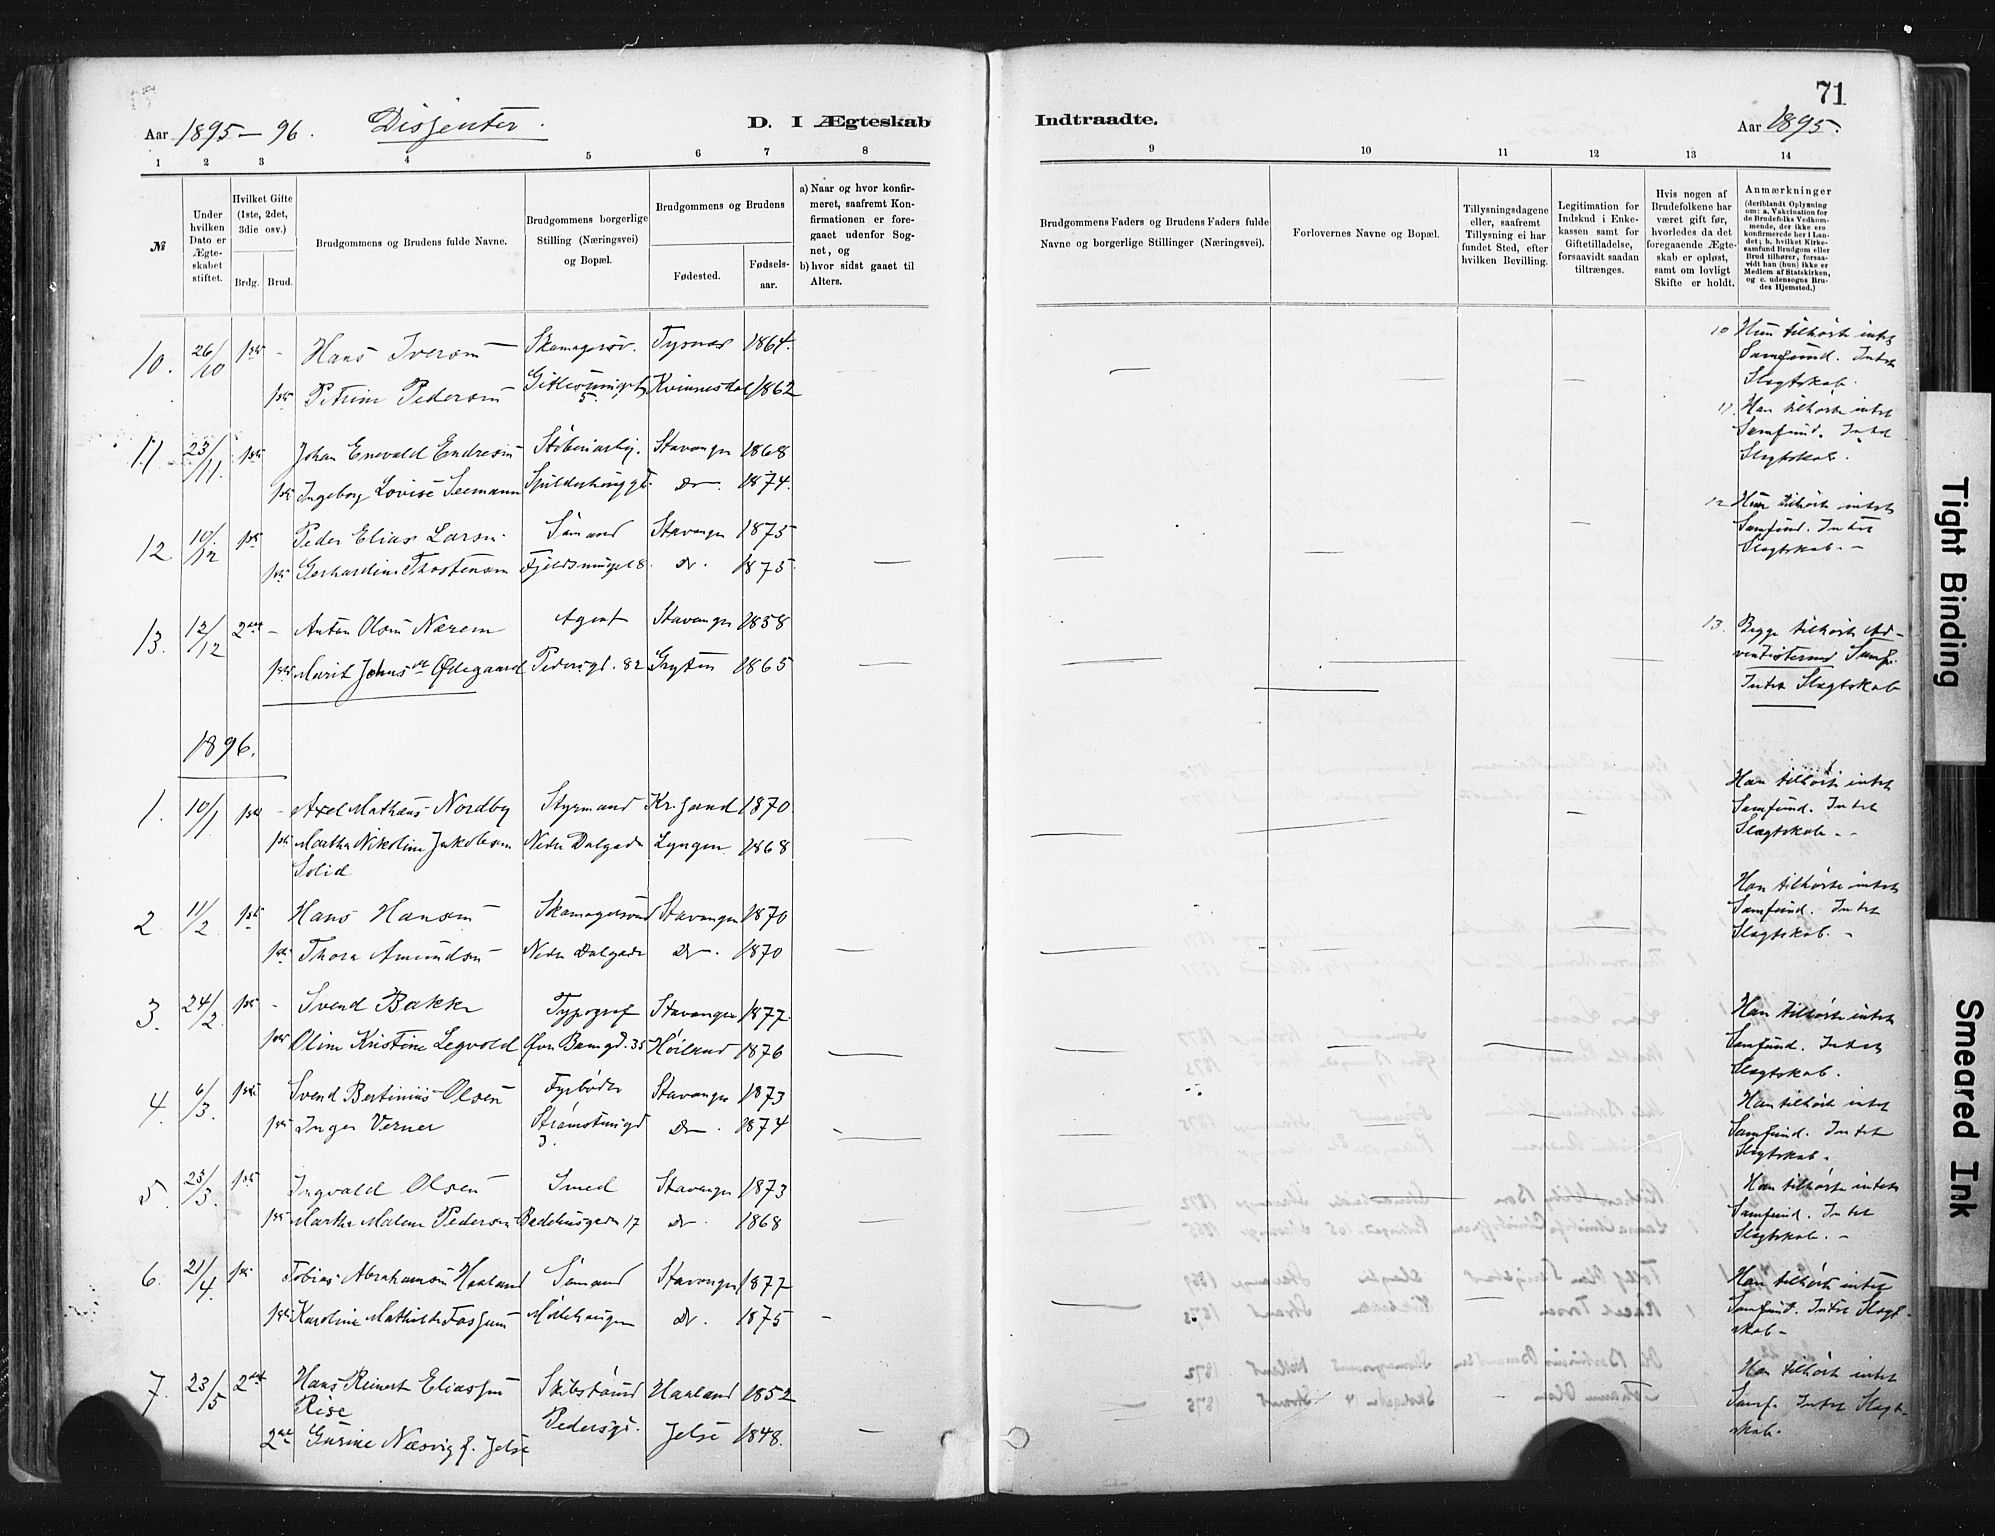 71
Aar 1895-96. Dissenter. D. I Ægteskab Indtraadte. Aar 1895.
1 2 3 4 5 6 7 8 9 10 11 12 13 14
№
Under hvilken Dato er Ægteskabet stiftet.
Hvilket Gifte (1ste, 2det, 3die osv.)
Brdg. Brud.
Brudgommens og Brudens fulde Navne.
Brudgommens borgerlige Stilling (Næringsvei) og Bopæl.
Brudgommens og Brudens
Fødested. Fødselsaar.
a) Naar og hvor konfirmeret, saafremt Konfirmationen er foregaaet udenfor Sognet, og
b) hvor sidst gaaet til Alters.
Brudgommens Faders og Brudens Faders fulde Navne og borgerlige Stillinger (Næringsvei).
Forlovernes Navne og Bopæl.
Tillysningsdagene eller, saafremt Tillysning ei har fundet Sted, efter hvilken Bevilling.
Legitimation for Indskud i Enkekassen samt for Giftetilladelse, forsaavidt saadan tiltrænges.
Hvis nogen af Brudefolkene har været gift før, hvorledes da det foregaaende Ægteskab er opløst, samt om lovligt Skifte er holdt.
Anmærkninger (deriblandt Oplysning om: a. Vakcination for de Brudefolks Vedkommende, der ikke ere konfirmerede her i Landet; b. hvilket Kirkesamfund Brudgom eller Brud tilhører, forsaavidt han (hun) ikke er Medlem af Statskirken, og c. udensogns Brudes Hjemsted.)
10. 26/10 1ste - Hans Iversen Tysnæs 1864.
1ste Petrine Pedersen Kvinnesdal 1862
10 Hun tilhørte intet
Samfund. Intet
Slægtskab.
11. 23/11. 1ste Johan Enevald Endresen Stavanger 1868
1ste Ingeborg Lovise Seemann Do. 1874.
11 Han tilhørte intet
Samfund. Intet
Slægtskab.
12. 10/12 1ste Peder Elias Larsen Sømand Stavanger 1875
1ste Gerhardine Thostensen Fjeldsmuget 8. Do. 1875.
12 Hun tilhørte intet
Samfund. Intet
Slægtskab. -
13. 12/12 2det - Anton Olsen Nærem Agent Stavanger 1858
1ste Marit Johnsdt Ødegaard Pedersgt. 82 Grytten 1865
13. Begge tilhørte Ad-
ventisternes Samf.
Intet Slægtskab
1896.
1. 10/1. 1ste - Axel Mathæus Nordby Styrmand Kr.sand 1870
1ste Martha Nikoline Jakobsen Nedre Dalgade Lyngen 1868
Solid
Han tilhørte intet
Samfund. Intet
Slægtskab. -
2 11/2 1ste Hans Hansen Skomagersvend Stavanger 1870
1ste Thora Amundsen Nedre Dalgade Do. 1870
Han tilhørte intet
Samfund. Intet
Slægtskab. -
3. 24/2. 1ste - Svend Bakke Typograf Stavanger 1877
1ste Oline Kristine Legvold Øvre Bangd. 35 Høiland 1876
Han tilhørte intet
Samfund. Intet
Slægtskab.
4. 6/3. 1ste Svend Bertinius Olsen Fyrbøder Stavanger 1873
1ste Inger Verner Do. 1874
3
Han tilhørte intet
Samfund. Intet
Slægtskab.
5. 23/3. 1ste Ingvald Olsen Smed Stavanger 1873
1ste Martha Malene Pedersen Bedehusgaden 17 do. 1868
Han tilhørte intet
Samfund. Intet
Slægtskab. -
6. 21/4. 1ste Tobias Abrahamsen Haaland Sømand Stavanger 1877
1ste Karoline Mathilde Fossum Møllehaugen Do. 1875
Han tilhørte intet
Samfund. Intet Slægt-
skab -
7. 23/5 2det Hans Reinert Eliassen Haaland 1852
Rise Pedersgt.
2det Gurine Næsvig f. Jelse Jelse 1848.
Han tilhørte intet
Samf. Intet Slægt-
skab.
Tight Binding
Smeared Ink